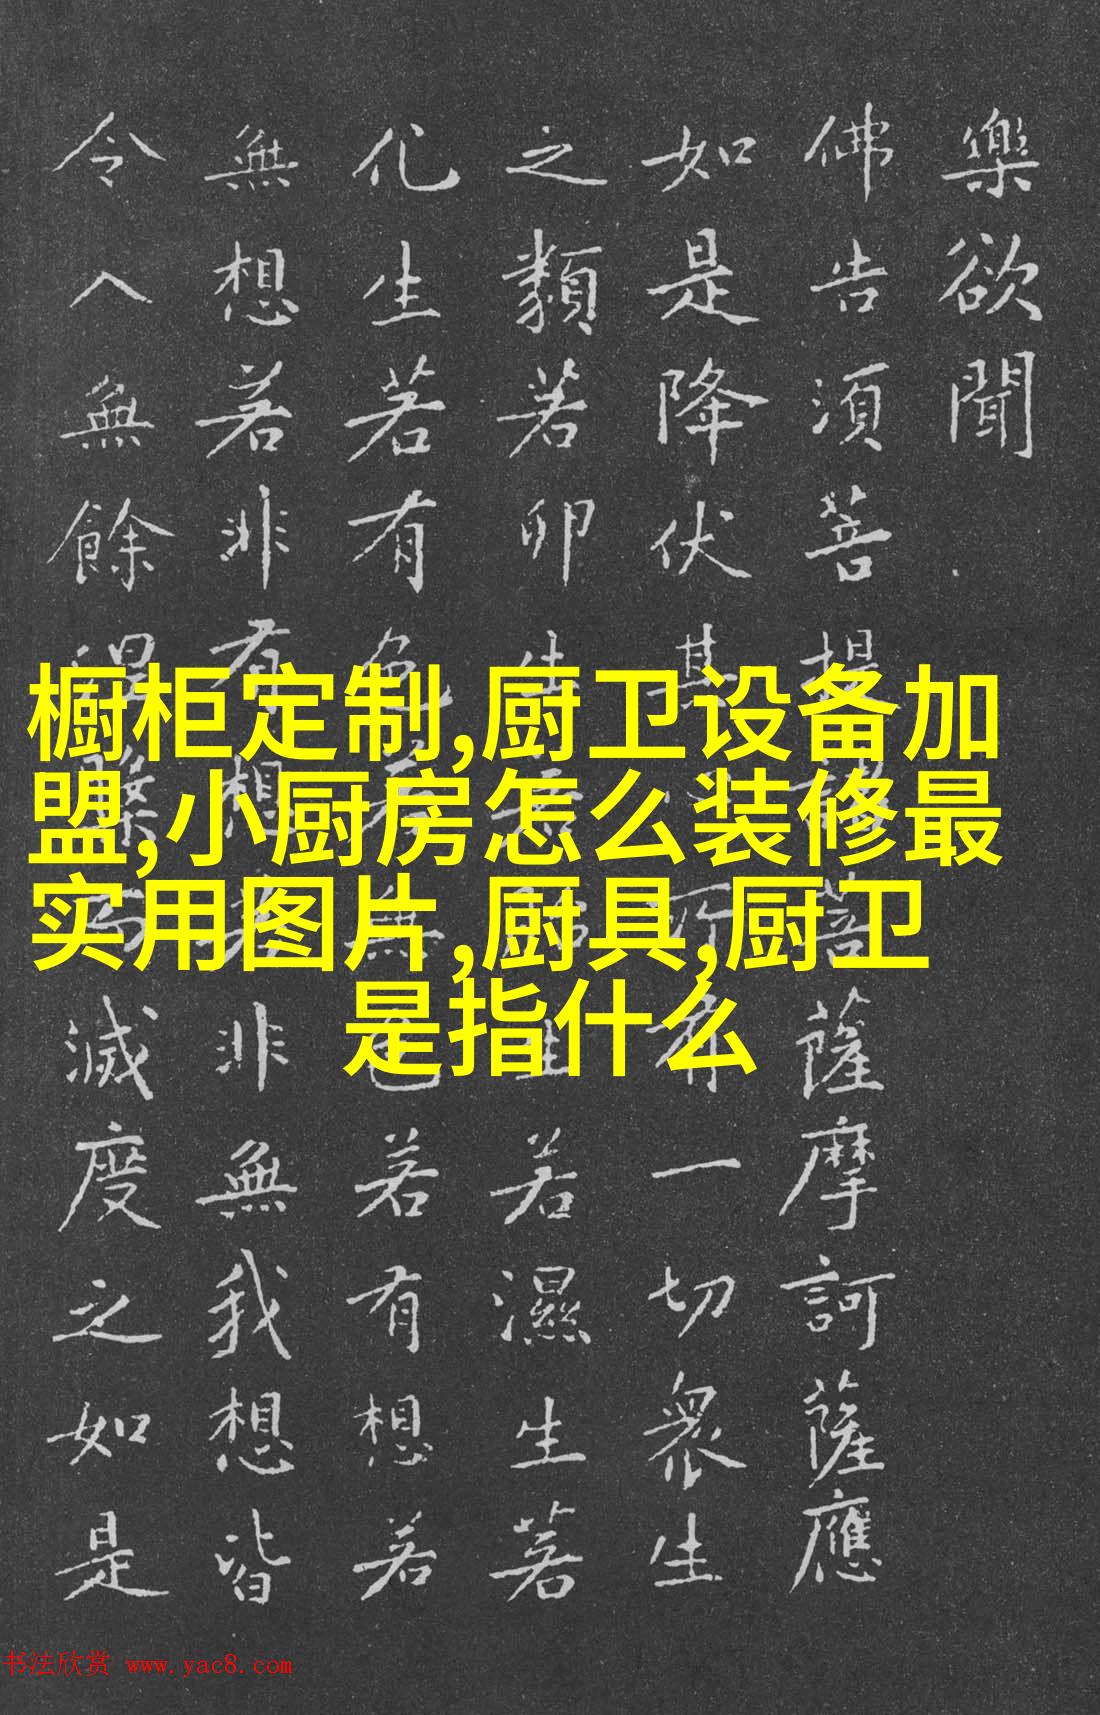 樂欲聞
佛告須菩提諸菩薩摩訶薩應
如是降伏其心所有一切眾生
之類若卵生若胎生若濕生若
化生若有色若無色若有想若
無想若非有想非無我想皆
令入無餘涅槃而滅度之如是
橱柜定制,厨卫设备加
盟,小厨房怎么装修最
实用图片,厨具,厨卫
是指什么
书法欣赏 www.yac8.com